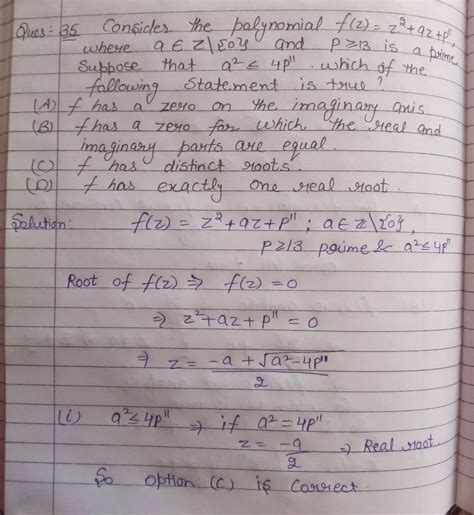 Ques:- 35 Consider the polynomial f(z) = z²+az+p¹¹,
where a ∈ Z\{0} and p ≥ 13 is a prime.
Suppose that a² ≤ 4p¹¹. which of the
following statement is true?
(A) f has a zero on the imaginary axis
(B) f has a zero for which the real and
imaginary parts are equal.
(C) f has distinct roots.
(D) f has exactly one real root.
Solution: f(z) = z²+az+p¹¹ ; a∈Z\{0},
p≥13 prime & a²≤4p¹¹
Root of f(z) ⇒ f(z)=0
⇒ z²+az+p¹¹ = 0
⇒ z = -a+√a²-4p¹¹ / 2
(i) a²≤4p¹¹ ⇒ if a²=4p¹¹
z = -a/2 ⇒ Real root.
So option (C) is correct.